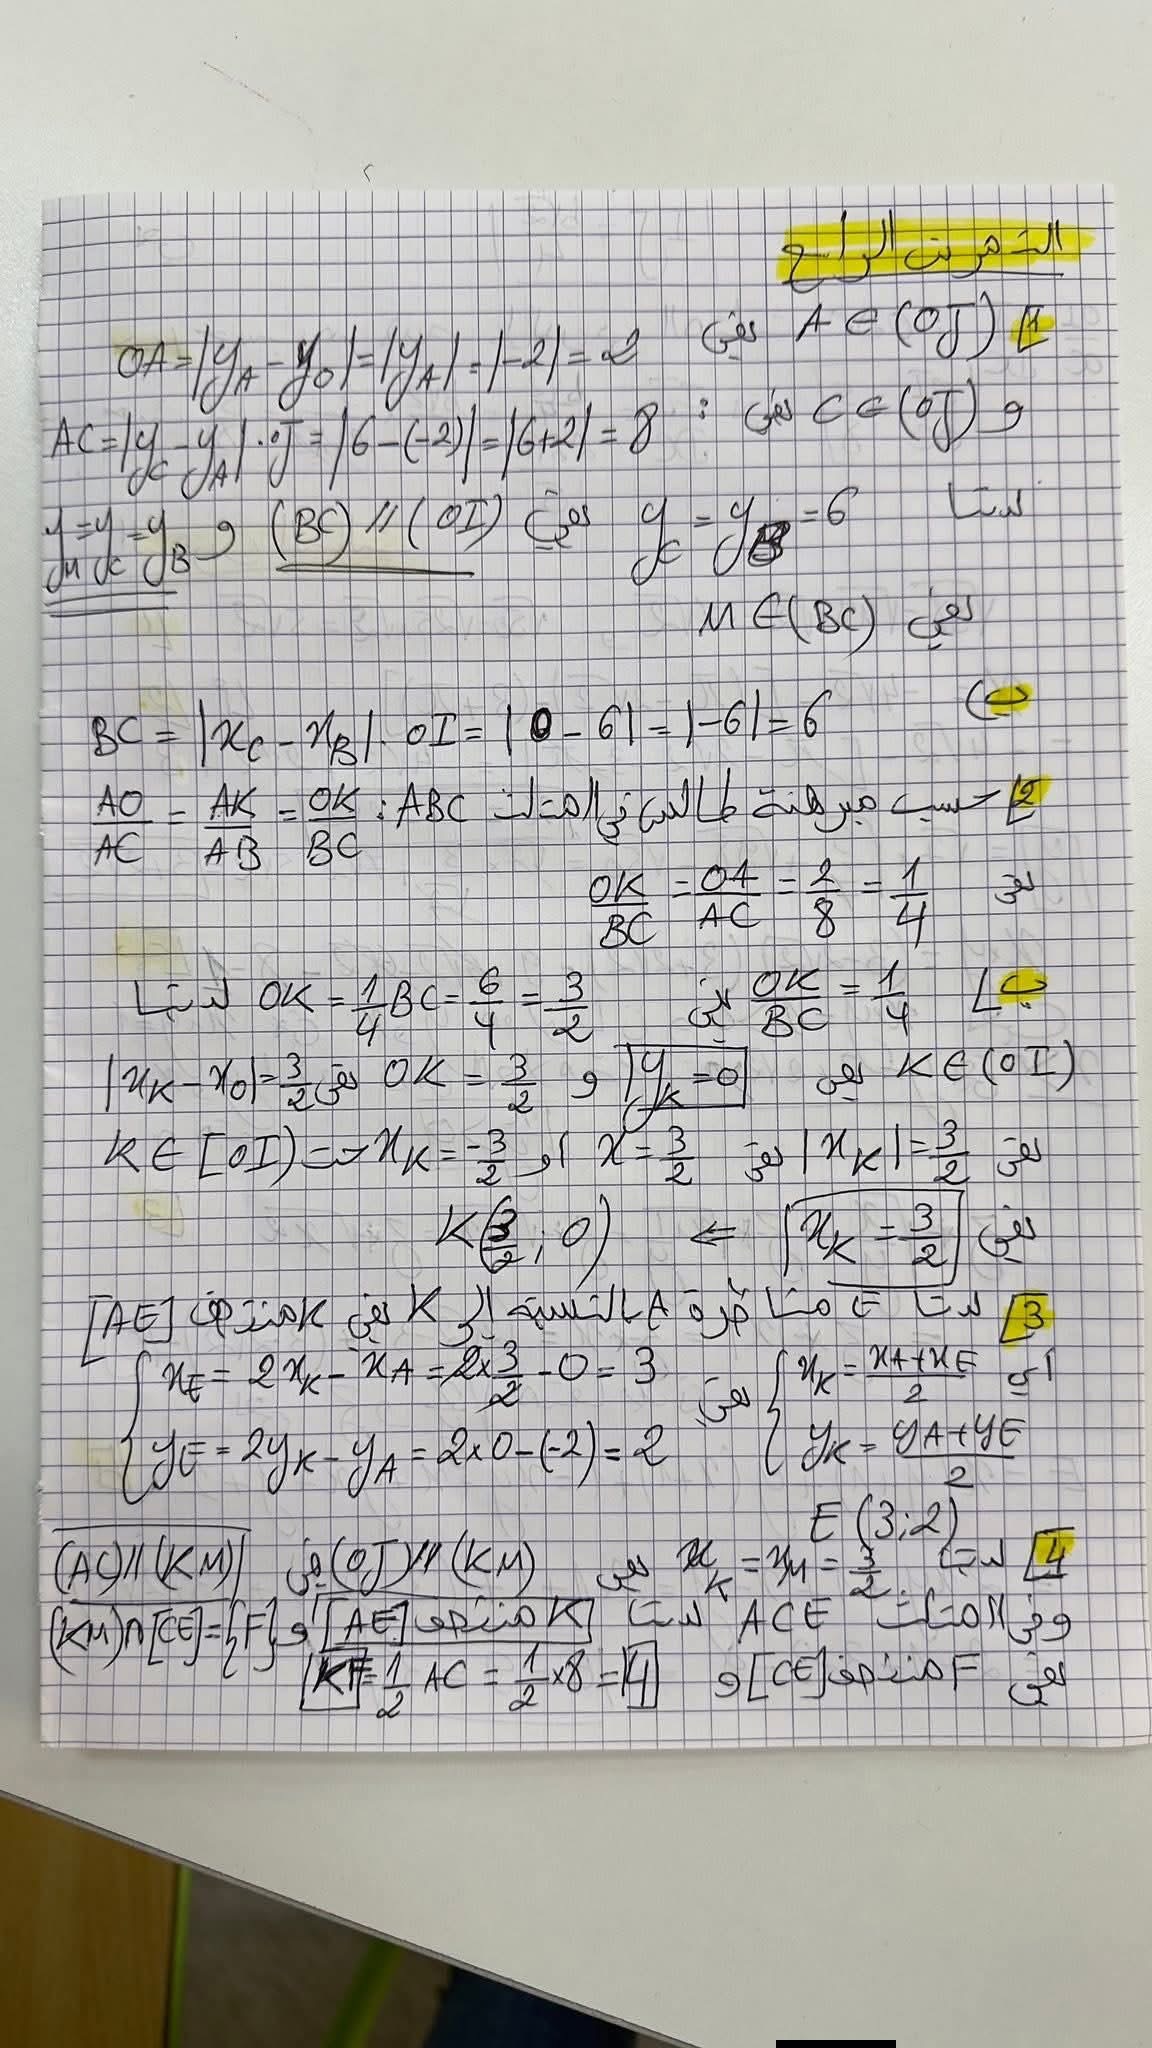 التمرين الرابع
1] A ∈ (OJ) يعني OA = |y_A - y_O| = |y_A| = |-2| = 2
و C ∈ (OJ) يعني : AC = |y_C - y_A| · OJ = |6 - (-2)| = |6+2| = 8
لدينا y_C = y_B = 6 يعني (BC) // (OI) و y_M = y_C = y_B
يعني M ∈ (BC)
ب) BC = |x_C - x_B| · OI = |0 - 6| = |-6| = 6
2] حسب مبرهنة طالس في المثلث ABC : AO/AC = AK/AB = OK/BC
يعني OK/BC = OA/AC = 2/8 = 1/4
ب] OK/BC = 1/4 يعني OK = 1/4 BC = 6/4 = 3/2 لدينا
K ∈ (OI) يعني y_K = 0 و OK = 3/2 يعني |x_K - x_O| = 3/2
يعني |x_K| = 3/2 يعني x = 3/2 او x_K = -3/2 ⇒ K ∈ [OI)
يعني x_K = 3/2 ⇐ K(3/2 ; 0)
3] لدينا E مناظرة A بالنسبة الى K يعني K منتصف [AE]
أي { x_K = (x_A + x_E)/2 يعني { x_E = 2x_K - x_A = 2×3/2 - 0 = 3
y_K = (y_A + y_E)/2 y_E = 2y_K - y_A = 2×0 - (-2) = 2
E (3 ; 2)
4] لدينا x_K = x_M = 3/2 يعني (OJ) // (KM) يعني (AC) // (KM)
وفي المثلث ACE لدينا K منتصف [AE] و (KM) ∩ [CE] = {F}
يعني F منتصف [CE] و KF = 1/2 AC = 1/2 × 8 = 4